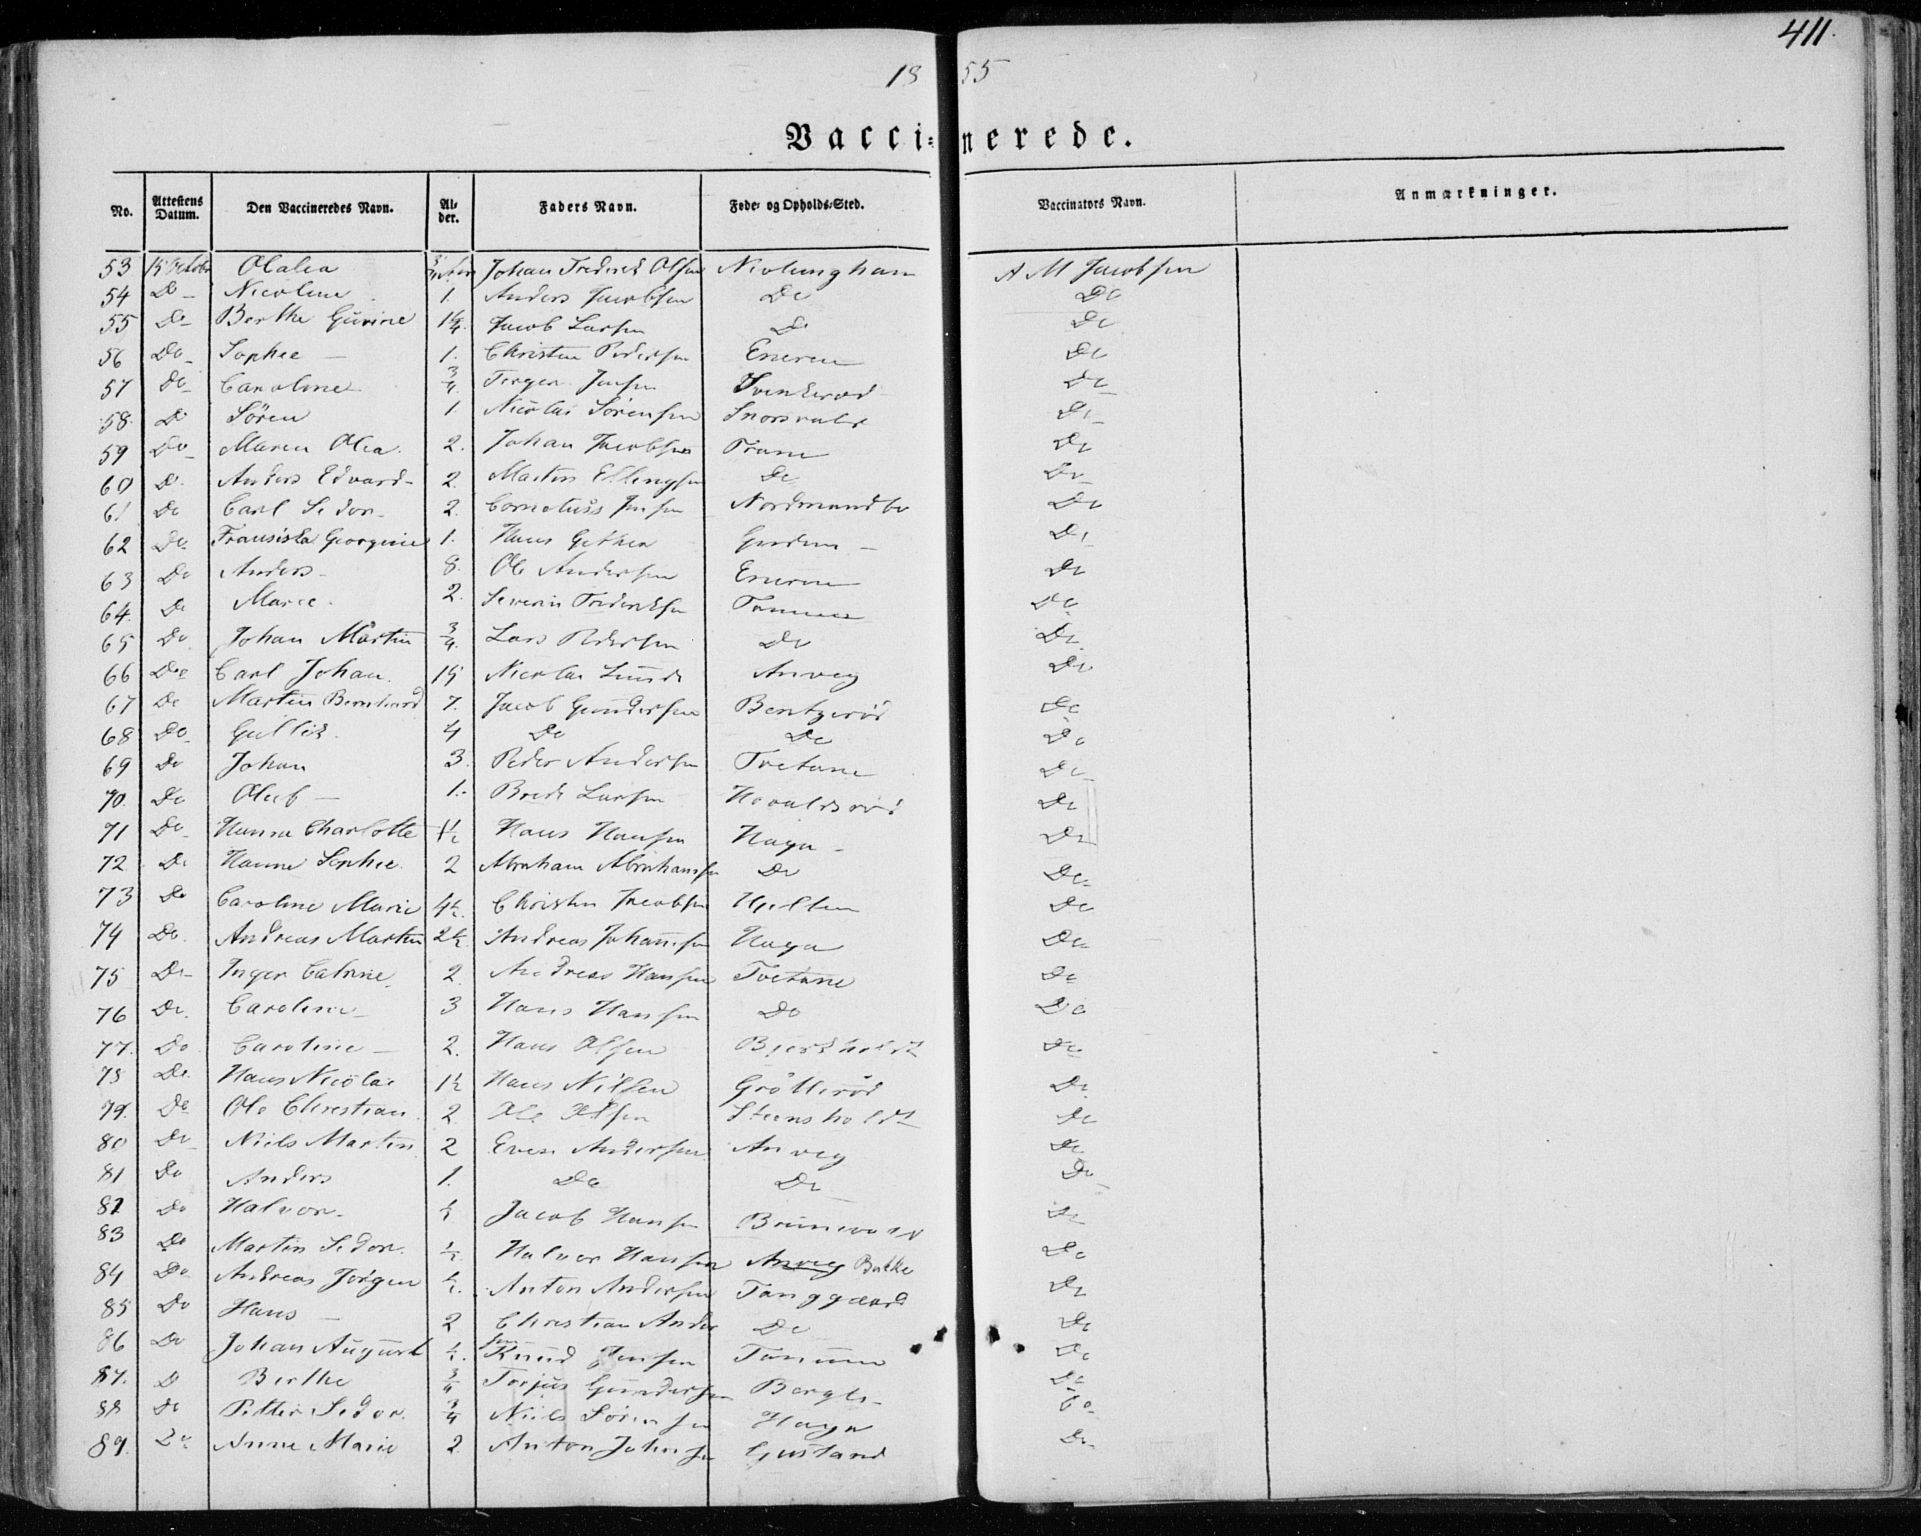 411.
18 55
Vacci= nerede.
No. Attestens Datum. Den Vaccineredes Navn. Al=der. Faders Navn. Føde= og Opholds=Sted. Vaccinators Navn. Anmærkninger.
53 15 October Olalea Johan Frederek Olsen Nevlungham A M Jacobsen
54 Do Nicoline 1. Anders Jacobsen Do Do
55 Do Berthe Gurine 1¼ Jacob Larsen Do Do
56 Do Sophie 1. Christen Pedersen Eneren Do
57 Do Caroline ¾ Jensen Do
58. Do Sören 1 Nicolai Sörensen Do
59 Do Maren Olea. 2. Johan Jacobsen Do
60 Do Anders Edvard 2. Martin Ellingsen Do Do
61 Do Carl Sedor 2. Cornelius Jensen Nordmandbo Do
62 Do Fransiska Georgine 1. Hans Do
63 Do Anders 8. Ole Andersen Eneren Do
64. Do Maree. 2. Severin Frederiksen Do
65 Do Johan Martin ¾ Lars Pedersen Do Do
66 Do Carl Johan. 15 Nicolai Lunde Anveg Do
67 Do Martin Bernhard 7. Jacob Gundersen Bentzeröd Do
68 Do Gullik. 4 Do Do Do
69 Do Johan 3. Peder Andersen Tvetane Do
70. Do Oluf 1. Brede Larsen Do
71 Do Hanna Charlotte 1½ Hans Hansen Haga Do
72 Do Hanne Sophie. 2 Abraham Abrahamsen Do Do
73 Do Caroline Marie 4½. Christen Jacobsen Do
74 Do. Andreas Martin 2½ Andreas Johannsen Haga Do
75 Do Inger Catrine. 2. Andreas Hansen Tvetane Do
76 Do. Caroline 3 Hans Hansen Do Do
77. Do Caroline 2. Hans Olsen Bjerkholdt Do
78 Do. Hans Nicolai 1½ Hans Nilsen Grötteröd Do
79. Do Ole Christian. 2 Ole Olsen Steensholdt Do
80 Do Niels Martin 2 Even Andersen Anveg Do
81 Do Anders 1. Do Do Do
82 Do Halvor. ½ Jacob Hansen Do
83 Do Martin Sedor. ½ Halvor Hansen Anveg Bakke Do
84 Do Andreas Jörgen ½. Anton Andersen Tanggaard Do
85 Do Hans 2 Christian Andersen Do Do
86 Do Johan August ½. Knud Jensen Tanum Do
87. Do Berthe ¾ Torjus Gundersen Do
88 Do Petter Sedor. ¾ Niels Sörensen Haga Do
89. Do Anne Marie 2. Anton Johnsen Gusland Do